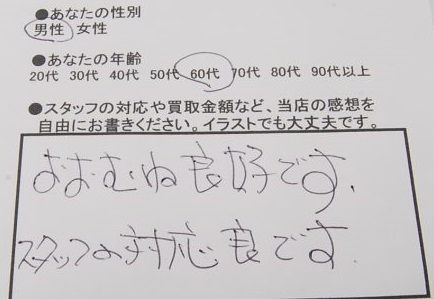 ●あなたの性別
男性 女性
●あなたの年齢
20代 30代 40代 50代 60代 70代 80代 90代以上
●スタッフの対応や買取金額など、当店の感想を
自由にお書きください。イラストでも大丈夫です。
おおむね良好です.
スタッフの対応良です.